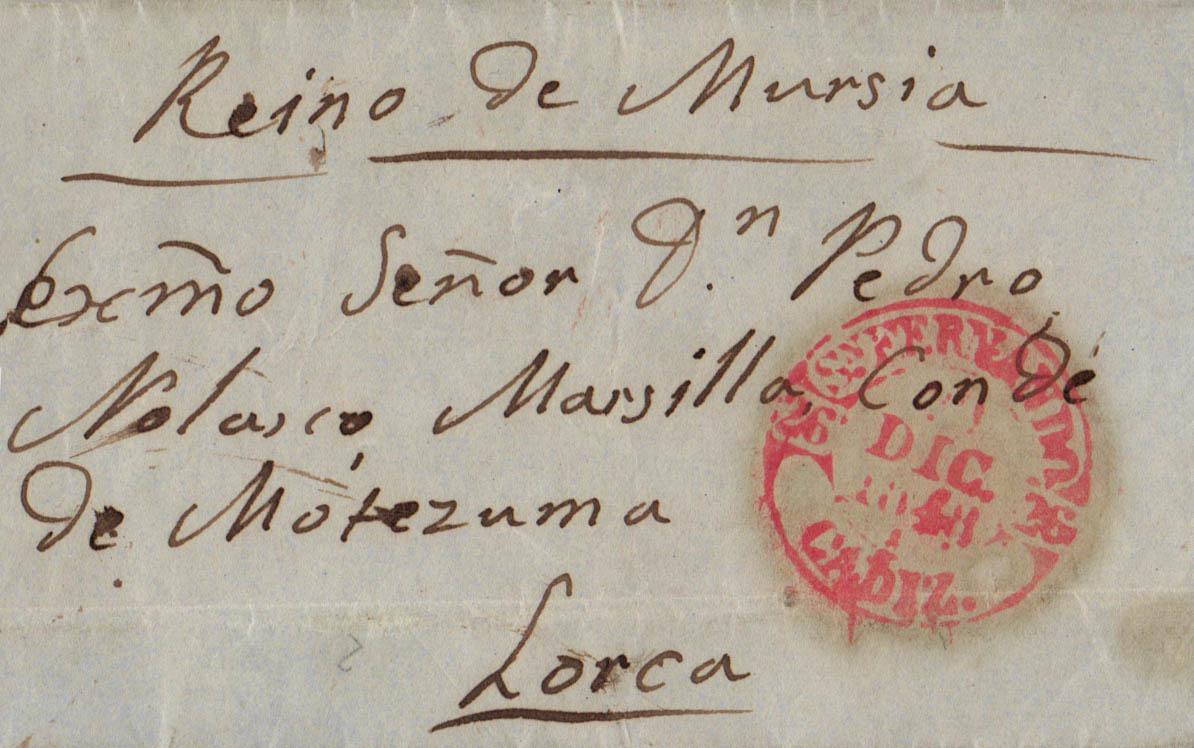 Reino de Mursia
Exm̃o Señor Dⁿ. Pedro
Nolasco Marsilla, Conde
de Mótezuma
Lorca
DIC.
CADIZ.